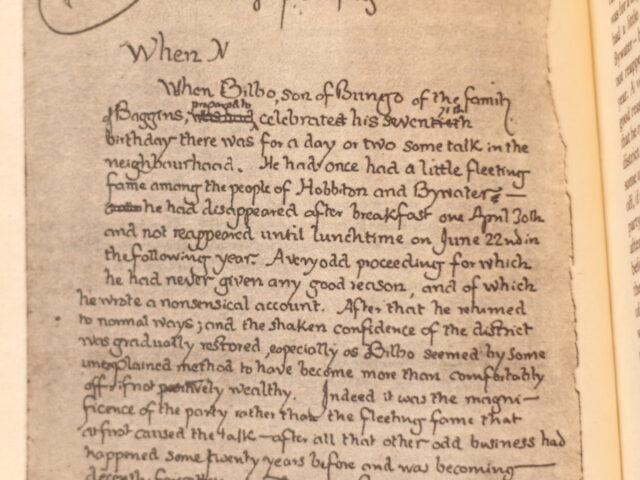 When N
When Bilbo, son of Bungo of the family
prepared to
of Baggins, celebrated his seventieth
birthday there was for a day or two some talk in the
neighbourhood. He had once had a little fleeting
fame among the people of Hobbiton and Bywater —
he had disappeared after breakfast one April 30th
and not reappeared until lunchtime on June 22nd in
the following year. A very odd proceeding for which
he had never given any good reason, and of which
he wrote a nonsensical account. After that he returned
to normal ways; and the shaken confidence of the district
was gradually restored, especially as Bilbo seemed by some
unexplained method to have become more than comfortably
off, if not positively wealthy. Indeed it was the magni-
ficence of the party rather than the fleeting fame that
at first caused the talk — after all that other odd business had
happened some twenty years before and was becoming
decently forgotten